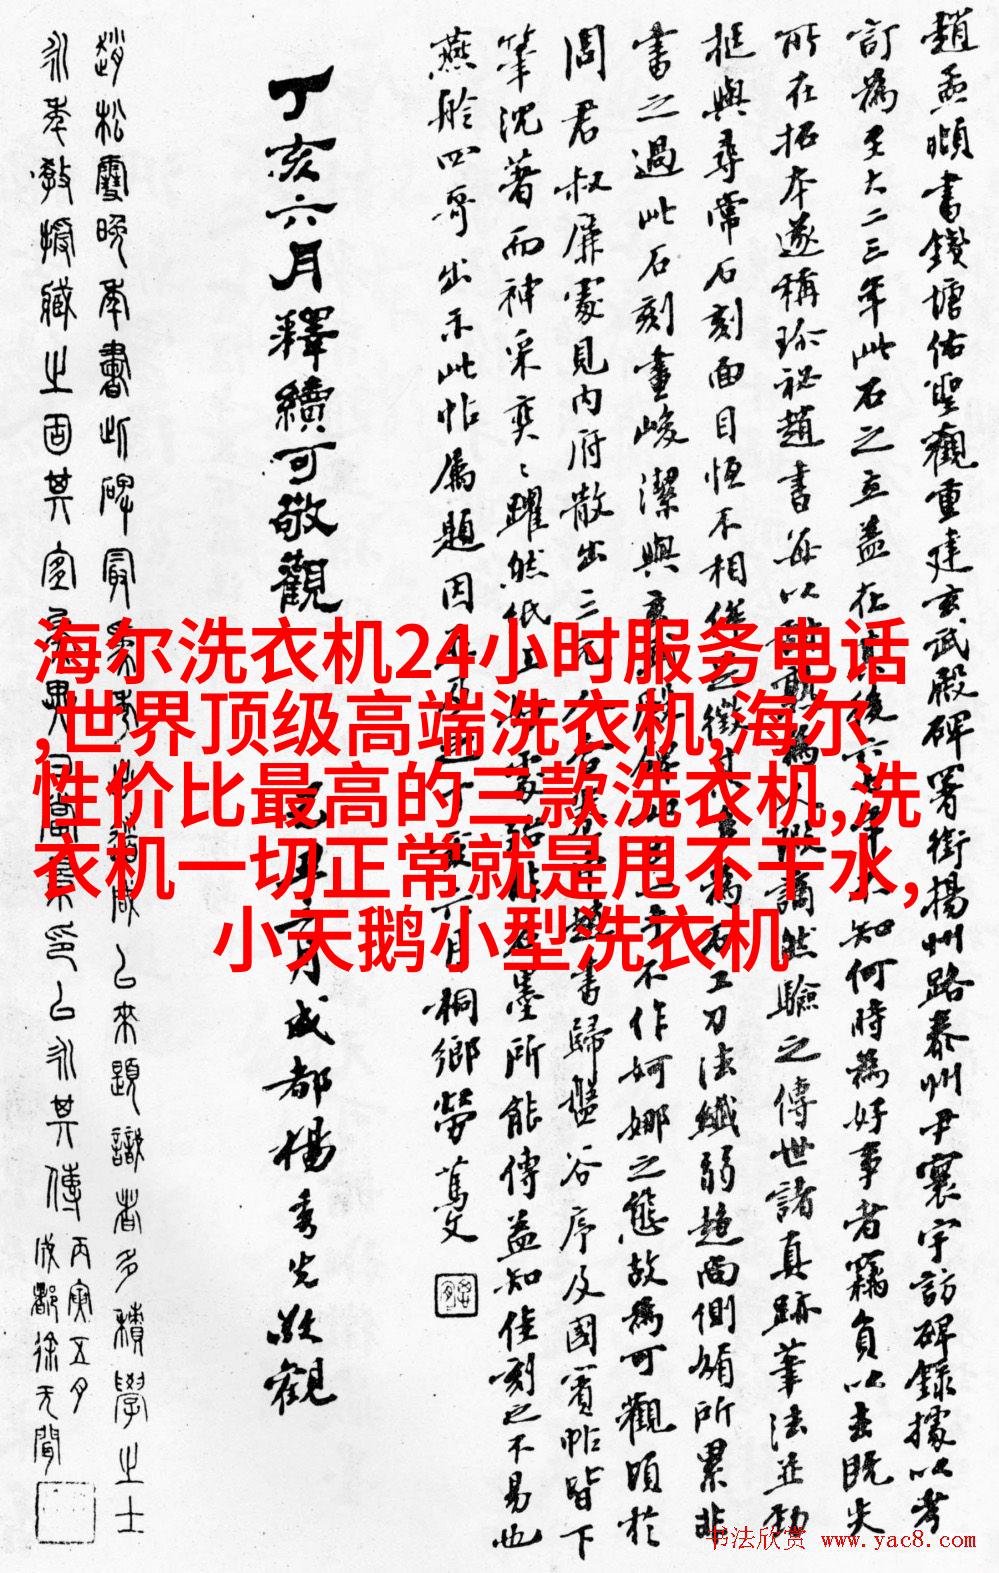 趙孟頫書錢塘佑聖觀重建玄武殿碑署銜揚州路泰州尹寰宇訪碑錄據以考
訂為至大二三年此石之立蓋在其後六七年不知何時為好事者竊負以去既失
所在拓本遂稱珍秘趙書每以
挺與尋常石刻面目恆不相
書之過此石刻畫峻潔與
周君叔廉處見內府散出三
筆沈著而神采奕〻躍然紙上
燕舲四哥出示此帖屬題因
丁亥六月釋續可敬觀
趙松雪晚年書此碑最
永年教授藏之固其宜
海尔洗衣机24小时服务电话
,世界顶级高端洗衣机,海尔
性价比最高的三款洗衣机,洗
衣机一切正常就是甩不干水,
小天鹅小型洗衣机
然驗之傳世諸真跡筆法並勁
為石工刀法纖弱趙面側媚所累非
不作婀娜之態故為可觀頃於
趙書歸盤谷序及國賓帖皆下
墨所能傳益知佳刻之不易也
六月桐鄉勞篤文
二月成都楊秀先敬觀
以來題識者多積學之士
印以永其傳
丙寅五月
成都徐无聞
书法欣赏 www.yac8.com